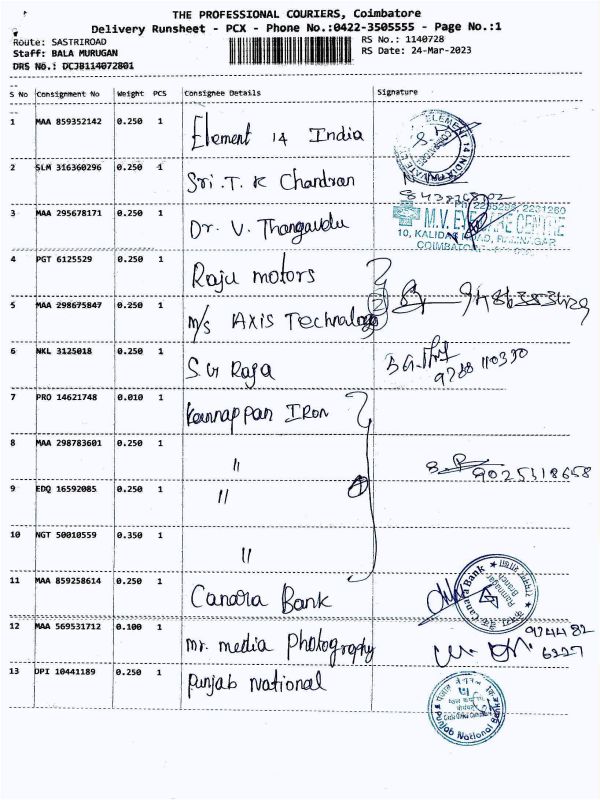 THE PROFESSIONAL COURIERS, Coimbatore
Delivery Runsheet - PCX - Phone No.:0422-3505555 - Page No.:1
Route: SASTRIROAD
RS No.: 1140728
Staff: BALA MURUGAN
RS Date: 24-Mar-2023
DRS No.: DCJB114072801
S No Consignment No Weight PCS Consignee Details Signature
1 MAA 859352142 0.250 1 Element 14 India
ELEMENT 14 INDIA
2 SLM 316360296 0.250 1 Sri. T. K Chandran
3 MAA 295678171 0.250 1 Dr. V. Thangavelu
2231260
M.V. EYE CARE CENTRE
10, KALIDAS ROAD, RAMNAGAR
4 PGT 6125529 0.250 1 Raju motors
5 MAA 298675847 0.250 1 m/s Axis Technology
6 NKL 3125018 0.250 1 S.G Raja
9788 110390
7 PRO 14621748 0.010 1 Kannappan Iron
8 MAA 298783601 0.250 1 "
9025318658
9 EDQ 16592085 0.250 1 "
10 NGT 50010559 0.350 1 "
11 MAA 859258614 0.250 1 Canara Bank
Canara Bank
Ramnagar
Branch
12 MAA 569531712 0.100 1 mr. media Photography
974482
6227
13 DPI 10441189 0.250 1 Punjab National
Punjab National Bank